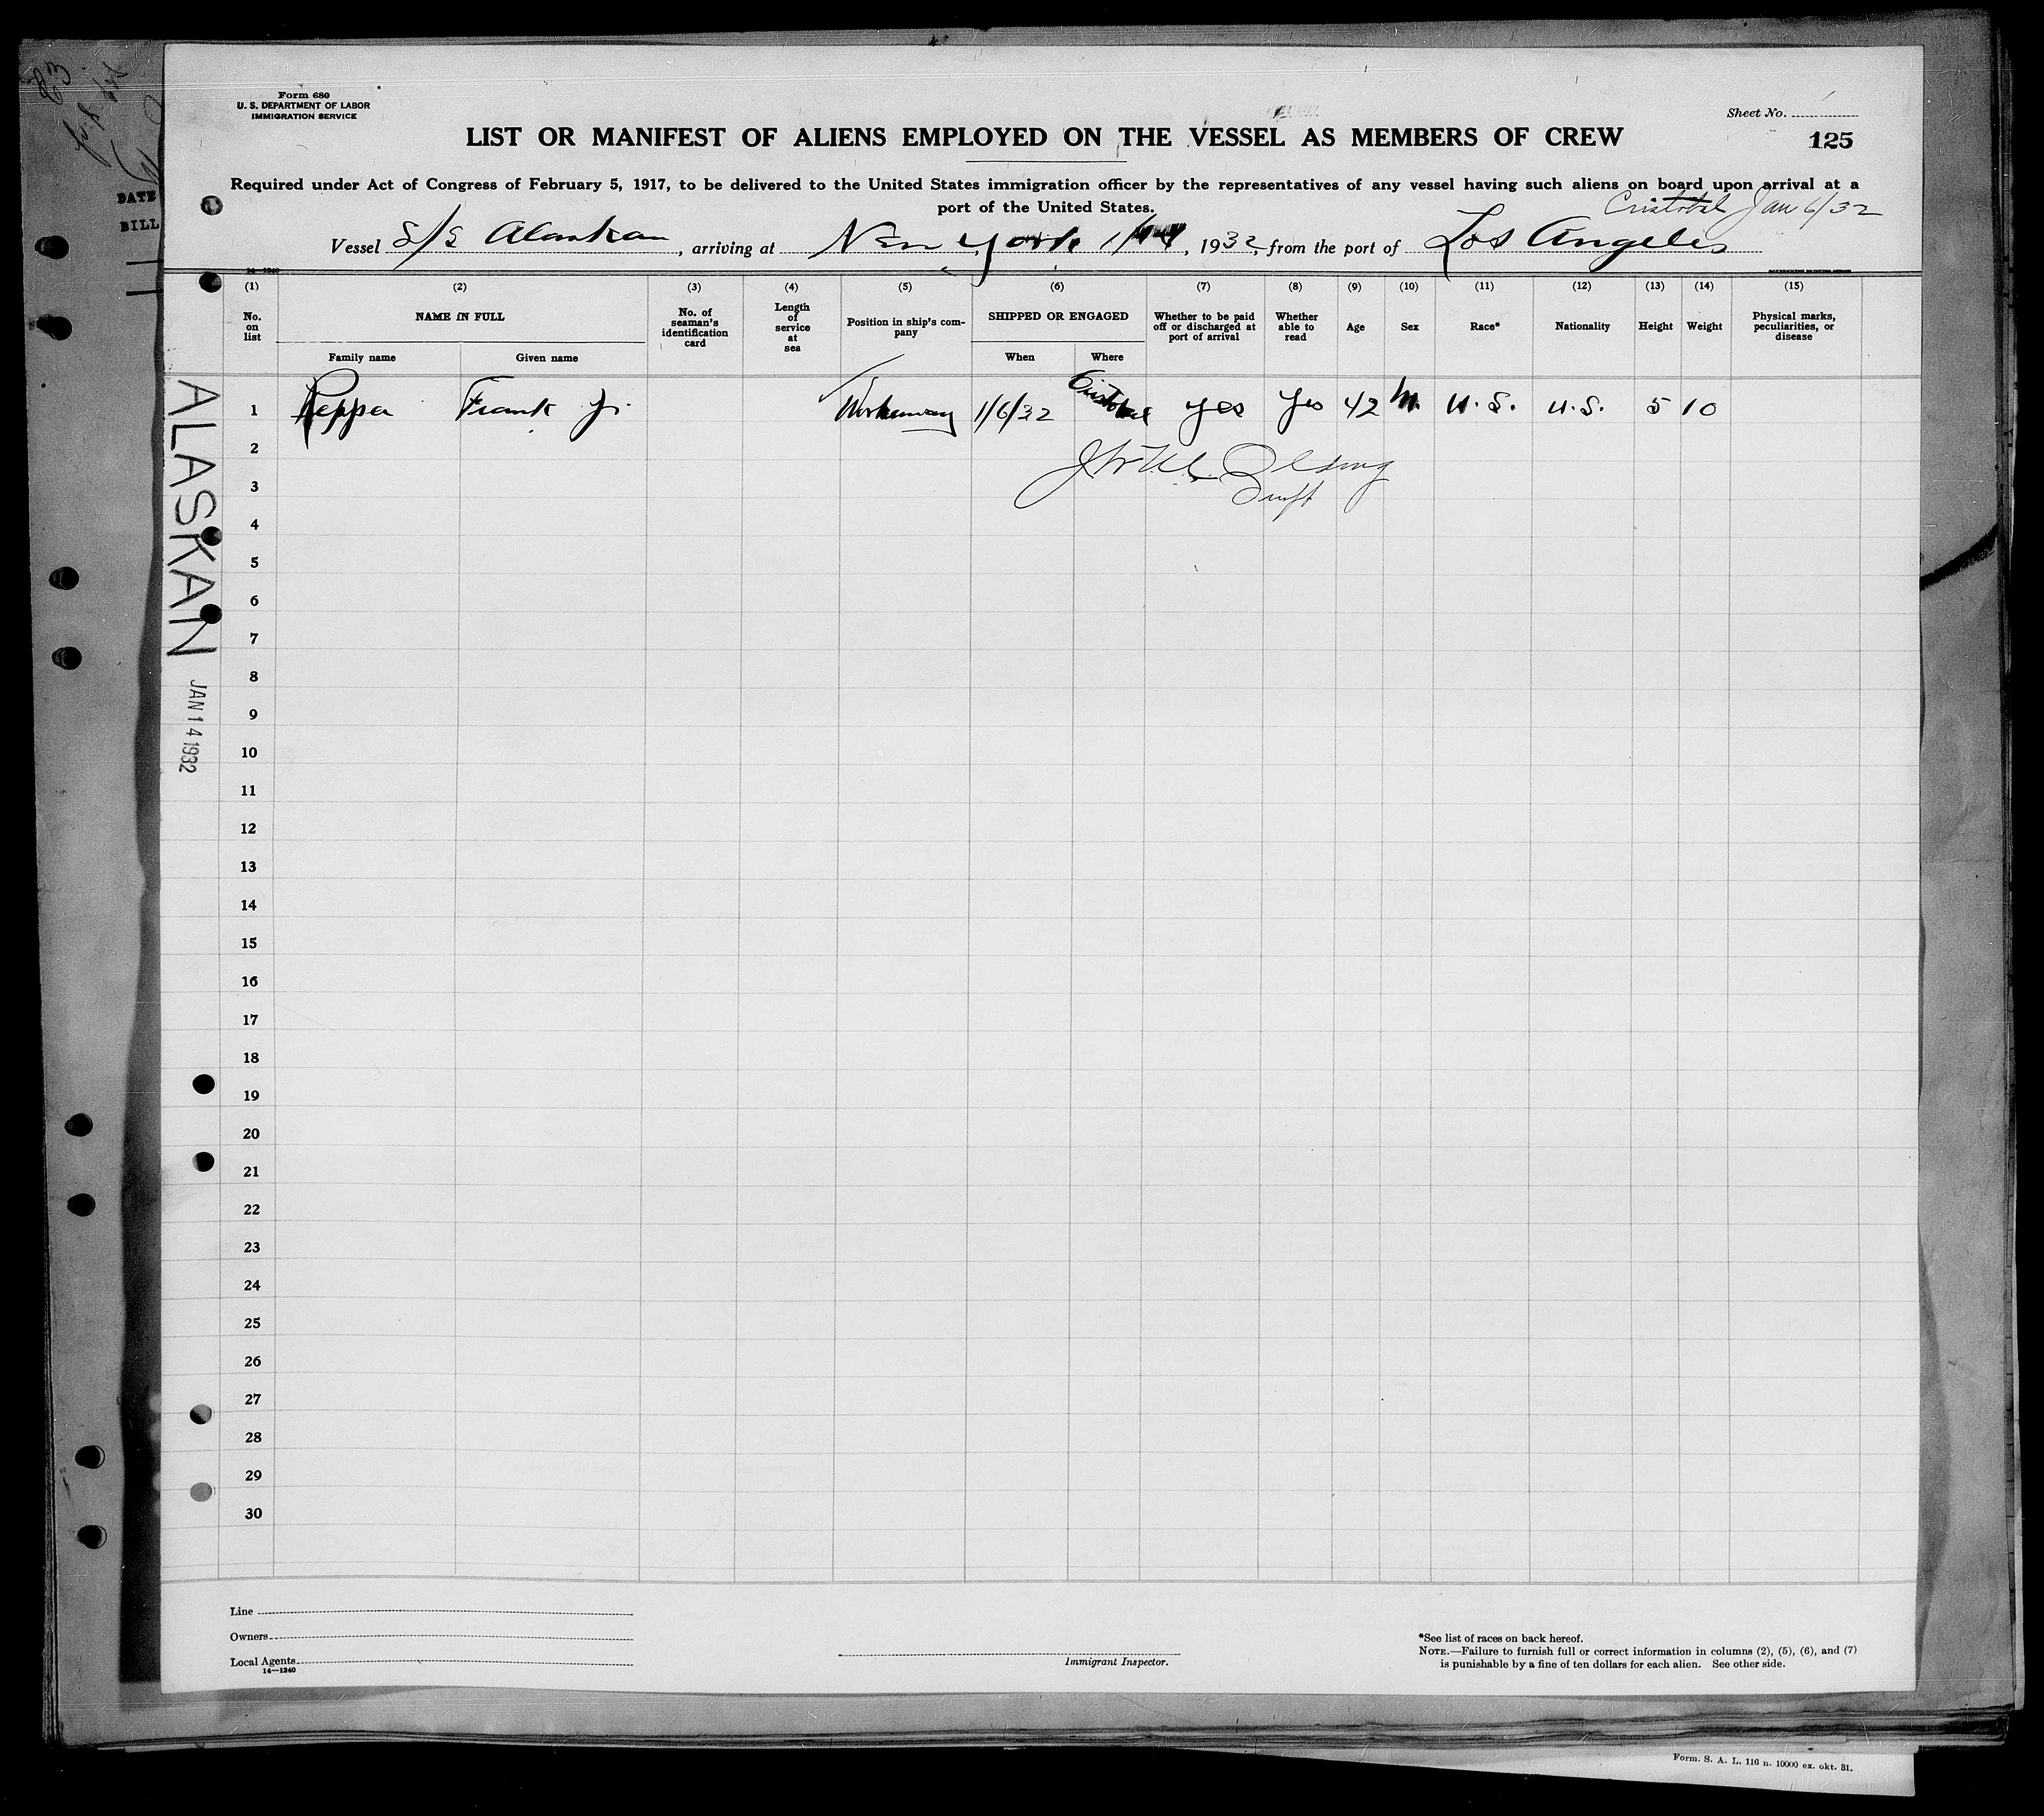 Form 680
U. S. DEPARTMENT OF LABOR
IMMIGRATION SERVICE
Sheet No.
LIST OR MANIFEST OF ALIENS EMPLOYED ON THE VESSEL AS MEMBERS OF CREW
125
Required under Act of Congress of February 5, 1917, to be delivered to the United States immigration officer by the representatives of any vessel having such aliens on board upon arrival at a
port of the United States.
Cristobal Jan 6/32
Vessel S/S Alaskan, arriving at New York 1/14, 1932, from the port of Los Angeles
14—1240
(1) (2) (3) (4) (5) (6) (7) (8) (9) (10) (11) (12) (13) (14) (15)
No. on list
NAME IN FULL
Family name
Given name
No. of seaman's identification card
Length of service at sea
Position in ship's company
SHIPPED OR ENGAGED
When
Where
Whether to be paid off or discharged at port of arrival
Whether able to read
Age
Sex
Race*
Nationality
Height
Weight
Physical marks, peculiarities, or disease
1 Frank Jr. Workaway 1/6/32 Cristobal yes Yes 42 M. U.S. U.S. 5 10
2
3
4
5
6
7
8
9
10
11
12
13
14
15
16
17
18
19
20
21
22
23
24
25
26
27
28
29
30
ALASKAN
JAN 14 1932
DATE
BILL
Line
Owners
Local Agents
14—1240
Immigrant Inspector.
*See list of races on back hereof.
NOTE.—Failure to furnish full or correct information in columns (2), (5), (6), and (7)
is punishable by a fine of ten dollars for each alien. See other side.
Form. S. A. L. 116 n. 10000 ex. okt. 31.